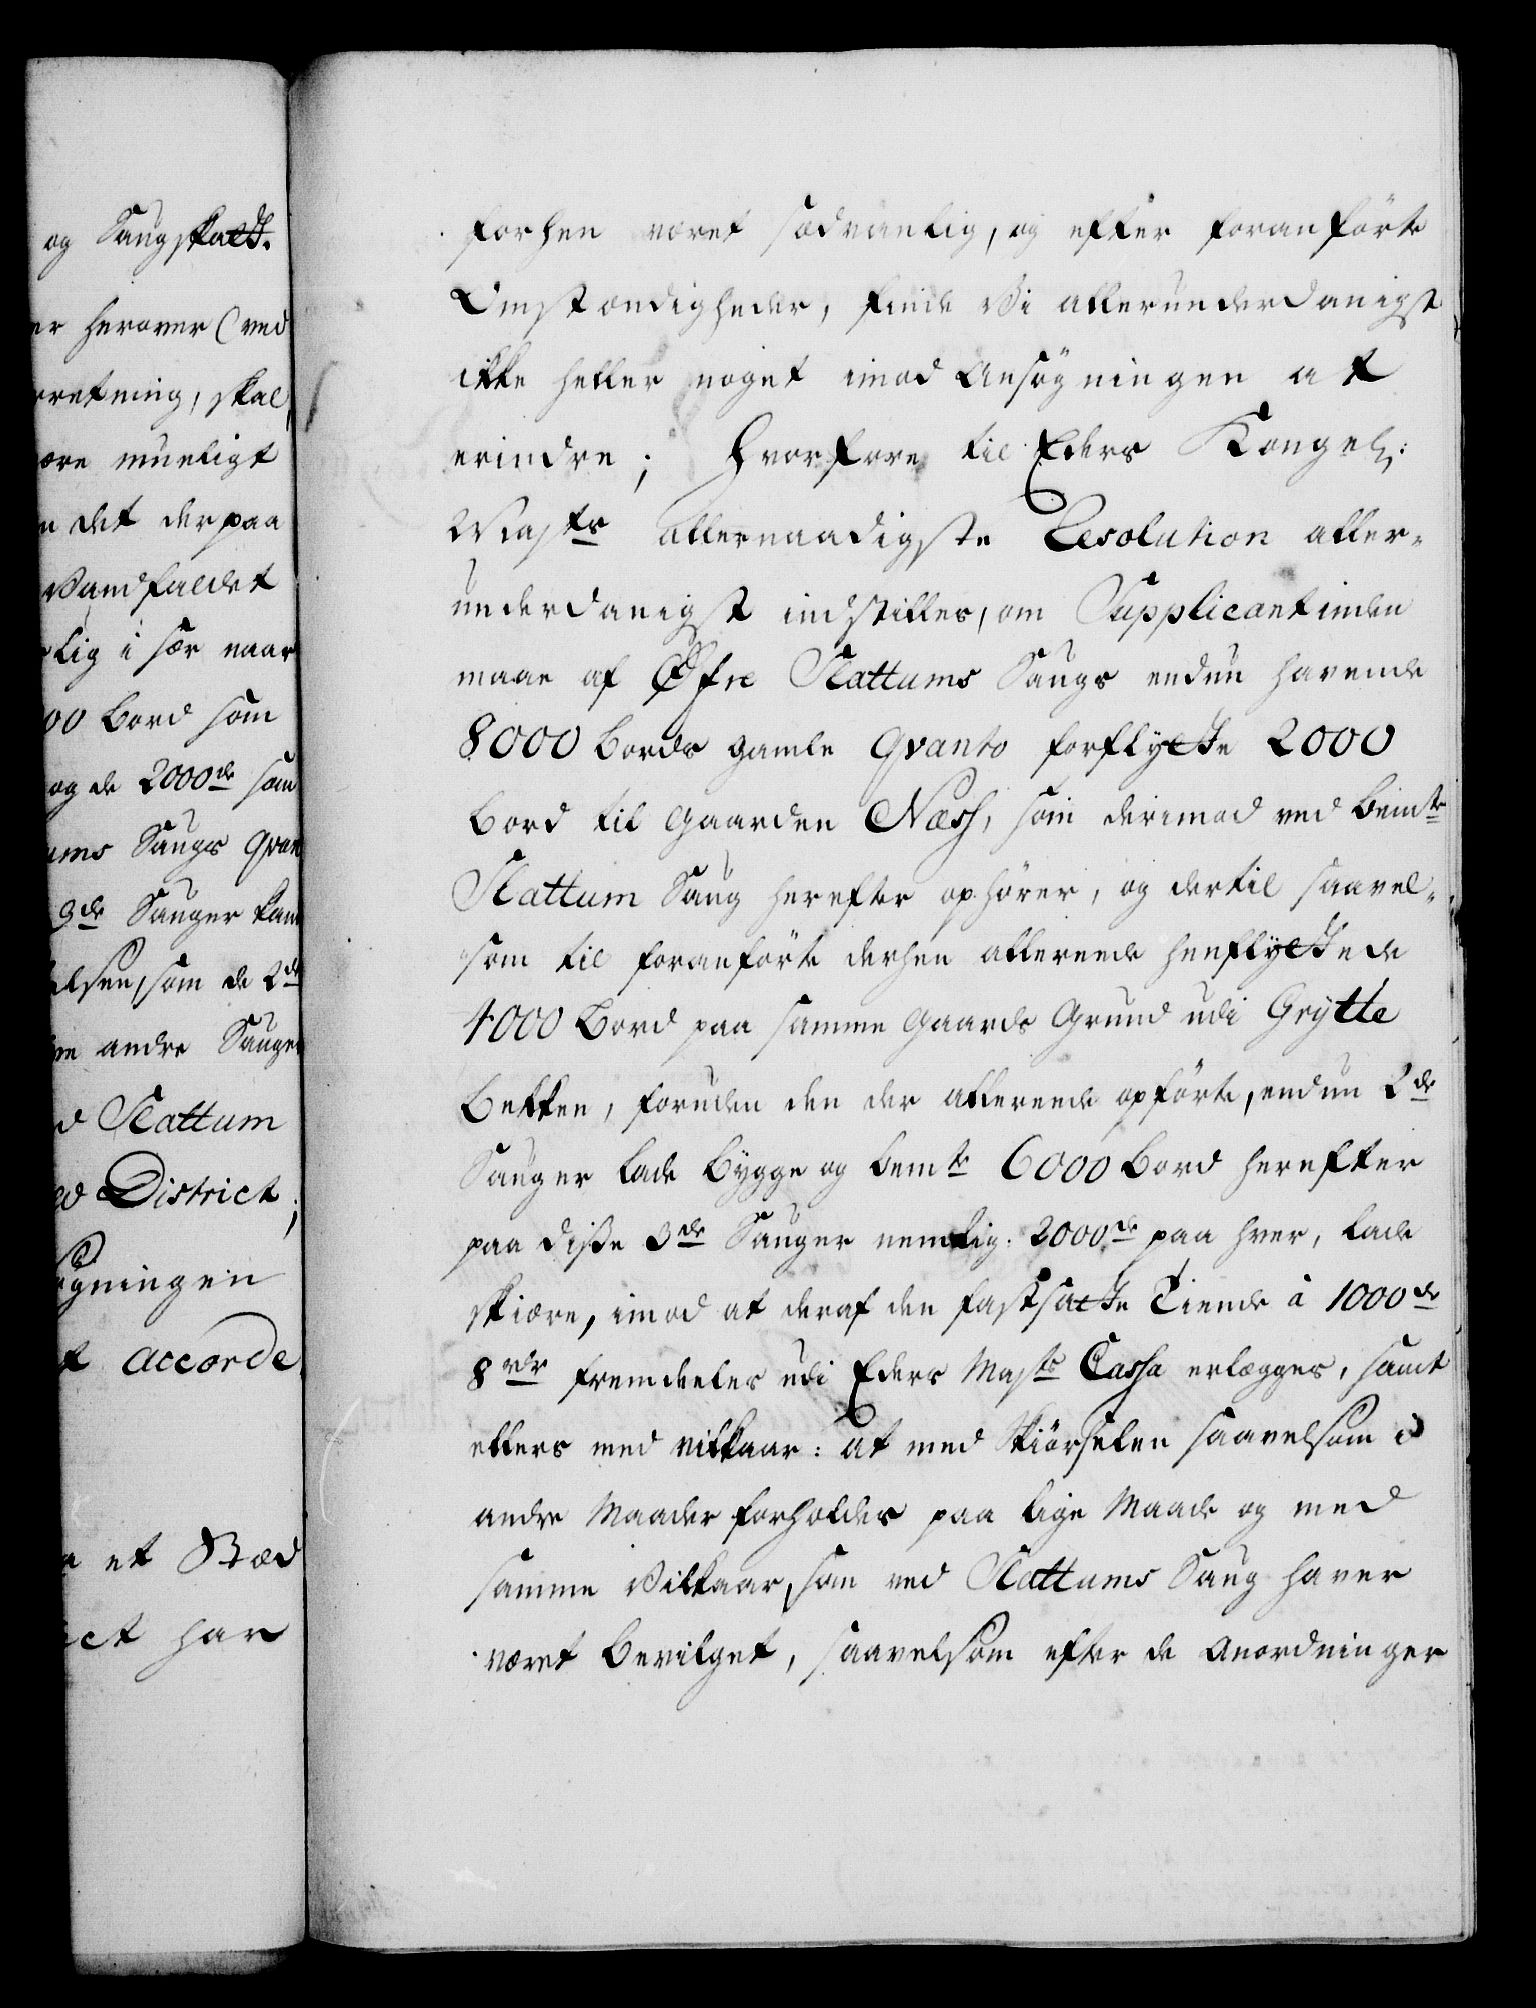 og Saugskatt.
er herover (ved
rretning, skal
ære mueligt
n det derpaa
Vandfaldet
lig i sær naar
00 Bord som
og de 2000de som
ums Saugs Qvan
3de Sauger kan
elsen, som de 2de
andre Sauger
d Slattum
District;
gningen
t accorde
et Stæd
ect har
forhen været sædvanlig, og efter foranførte
Omstændigheder, finde Vi allerunderdanigst
ikke heller noget imod Ansøgningen at
erindre; Hvorfore til Eders Kongel:
Majts allernaadigste Resolution aller-
underdanigst indstilles, om Supplicantinden
maae af Øfre Slattums Saugs endnu havende
8000 Bords gamle Qvanto forflytte 2000
Bord til Gaarden Næss, som derimod ved bemte
Slattum Saug herefter ophører, og dertil saavel-
som til foranførte derhen allereede henflyttede
4000 Bord paa samme Gaards Grund udi Grytte
Bekken, foruden den der allereede opførte, endnu 2de
Sauger lade bygge og bemte 6000 Bord herefter
paa disse 3de Sauger nemlig: 2000de paa hver, lade
skiære, imod at deraf den fastsatte Tiende à 1000de
8 rdr fremdeeles udi Eders Majts Cassa erlægges, samt
ellers med vilkaar: at med Skiørselen saavelsom i
andre Maader forholdes paa lige Maade og med
samme Vilkaar, som ved Slattums Saug haver
været bevilget, saavelsom efter de Anordninger